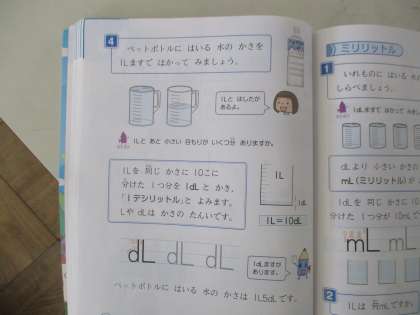 4
ペットボトルに はいる 水の かさを
1Lますで はかって みましょう。
1Lと はしたが
あるよ。
1Lと あと 小さい 目もりが いくつ分 ありますか。
1Lを 同じ かさに 10こに
分けた 1つ分を 1dLと かき、
「1デシリットル」と よみます。
Lや dLは かさの たんいです。
1L
1dL
1L=10dL
dL dL dL
1dLますが
あります。
ペットボトルに はいる 水の かさは 1L5dLです。
ミリリットル
1
いれものに はいる 水の
しらべましょう。
1dLますで はかって
dLより 小さい かさの
mL(ミリリットル)が
1dLを 同じ かさに 10
分けた 1つ分が 10mL
mL
2
1Lは 何mLですか。